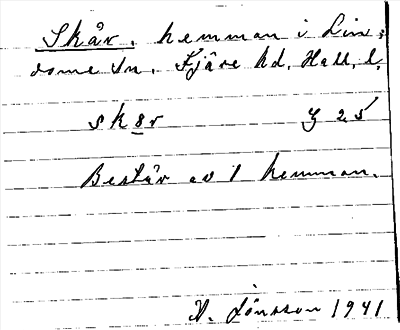 Skår, hemman i Lin-
dome sn. Fjäre hd. Hall. l.
sk8r Z 25
Består av 1 hemman.
H. Jönsson 1941